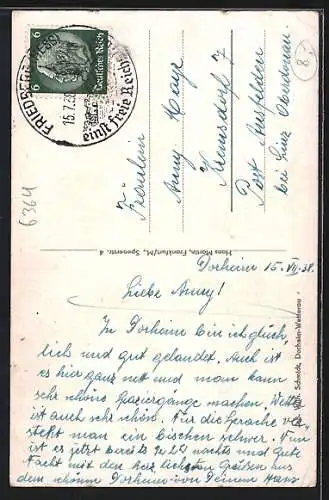 FRIEDBERG (HESS)
15.7.38
einst freie Reichs
Deutsches Reich
6 6
8.-
6364
Fräulein
Anny Mayr
Post Ansfelden
bei Linz Oberdonau
Hans Moritz, Frankfurt/M., Spenerstr. 4
Wilh. Schmöck, Dorheim-Wetterau
Dorheim 15. VII. 38.
Liebe Anny!
In Dorheim bin ich glück,
lich und gut gelandet. Auch ist
es hier ganz nett und man kann
sehr schöne Spaziergänge machen. Wetter
ist auch sehr schön. Nur die Sprache ver,
steht man ein bischen schwer. Nun
ist es jetzt bereits 12h nachts und Gute
Nacht mit den herzlichsten Grüßen aus
dem schönen Dorheim von Deinem Hans